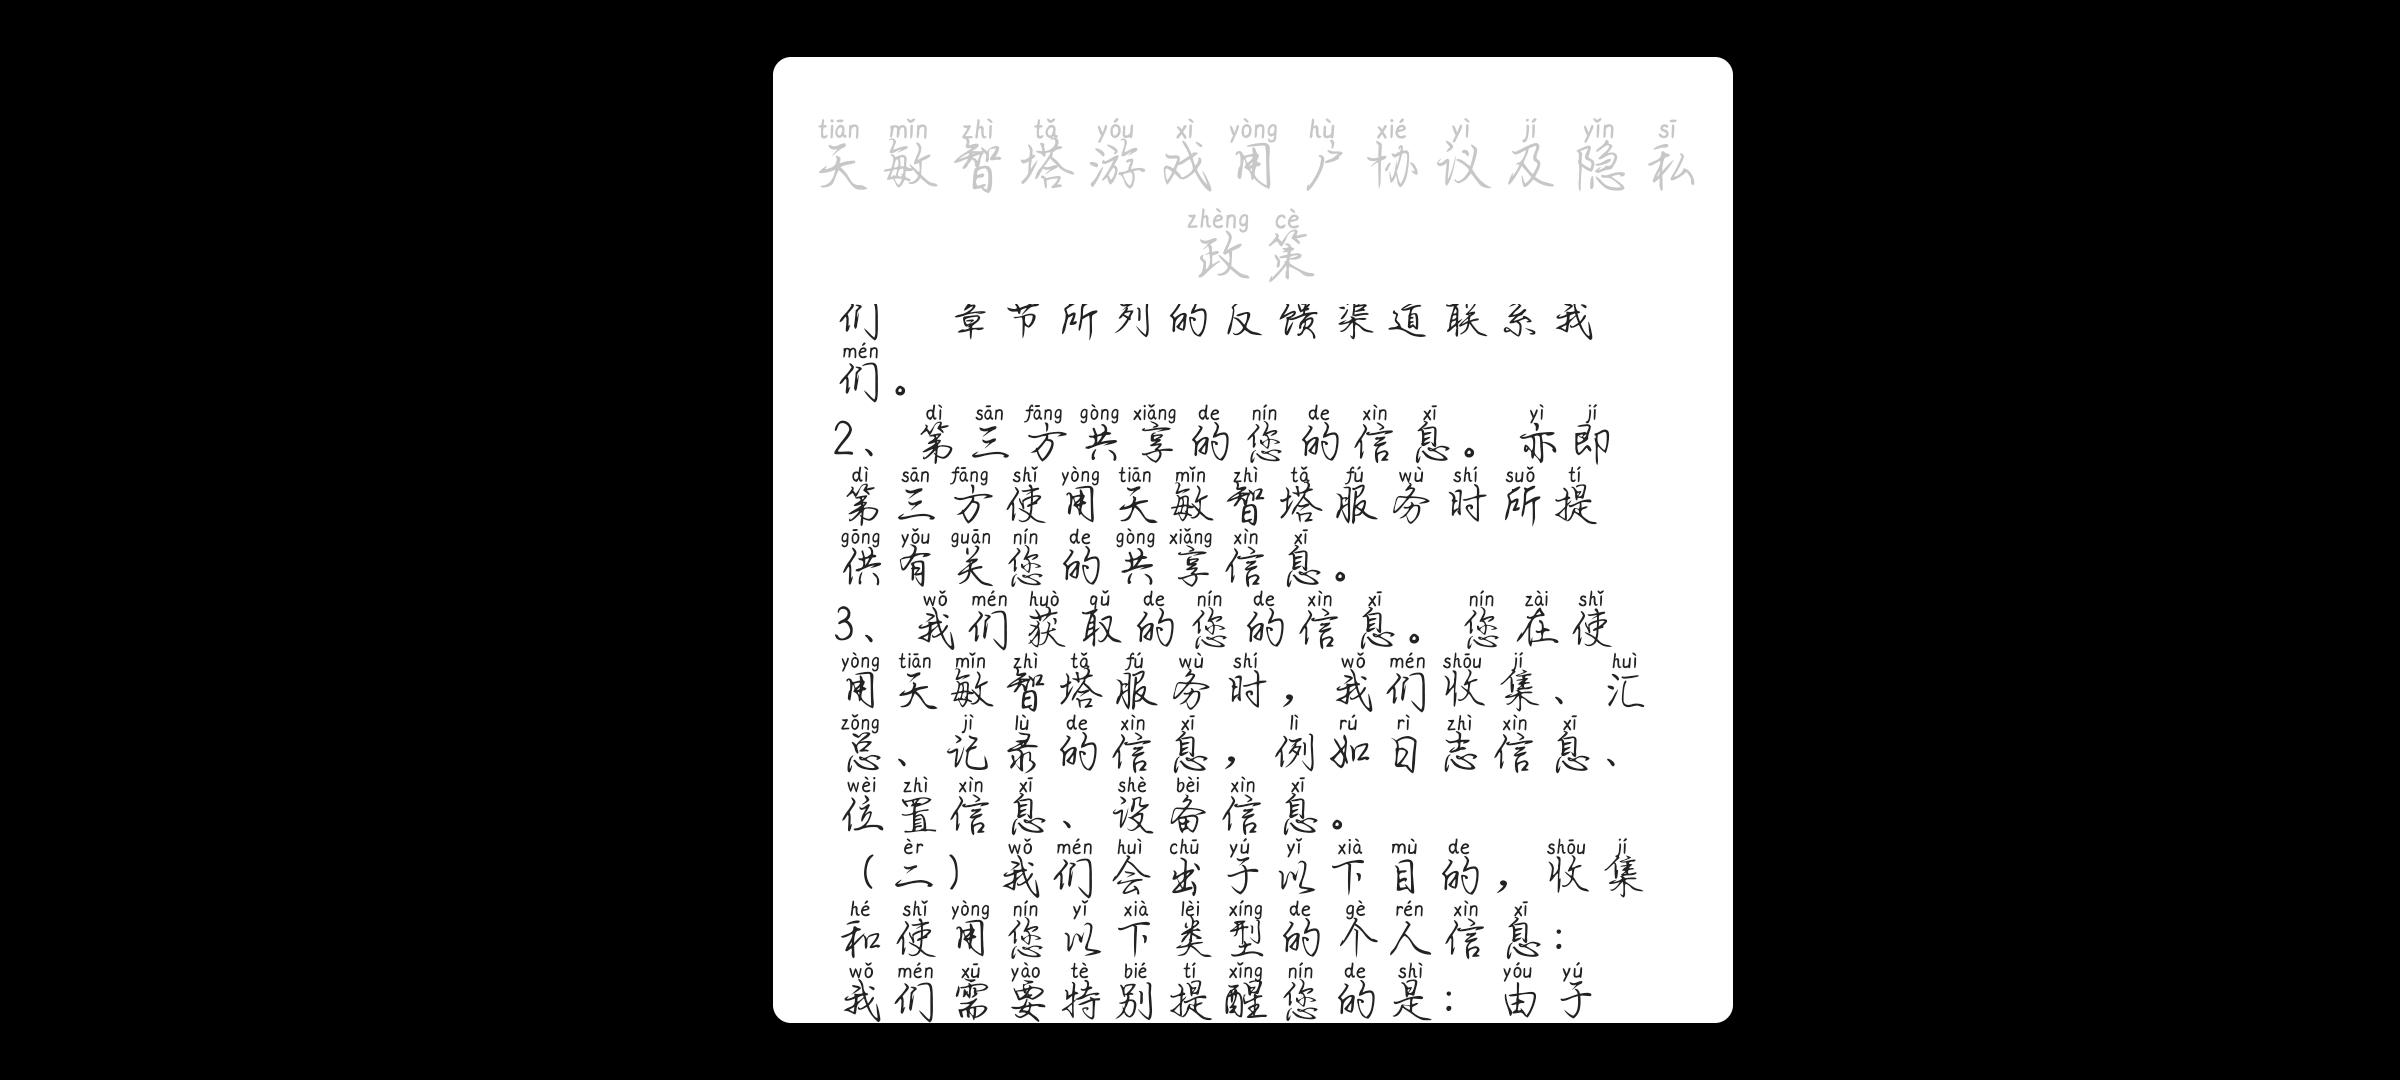 tiān mǐn zhì tǎ yóu xì yòng hù xié yì jí yǐn sī
天敏智塔游戏用户协议及隐私
zhèng cè
政策
们 章节所列的反馈渠道联系我
mén
们。
dì sān fāng gòng xiǎng de nín de xìn xī yì jí
2、第三方共享的您的信息。亦即
dì sān fāng shǐ yòng tiān mǐn zhì tǎ fú wù shí suǒ tí
第三方使用天敏智塔服务时所提
gōng yǒu guān nín de gòng xiǎng xìn xī
供有关您的共享信息。
wǒ mén huò qǔ de nín de xìn xī nín zài shǐ
3、我们获取的您的信息。您在使
yòng tiān mǐn zhì tǎ fú wù shí wǒ mén shōu jí huì
用天敏智塔服务时，我们收集、汇
zǒng jì lù de xìn xī lì rú rì zhì xìn xī
总、记录的信息，例如日志信息、
wèi zhì xìn xī shè bèi xìn xī
位置信息、设备信息。
èr wǒ mén huì chū yú yǐ xià mù de shōu jí
（二）我们会出于以下目的，收集
hé shǐ yòng nín yǐ xià lèi xíng de gè rén xìn xī
和使用您以下类型的个人信息：
wǒ mén xū yào tè bié tí xǐng nín de shì yóu yú
我们需要特别提醒您的是：由于